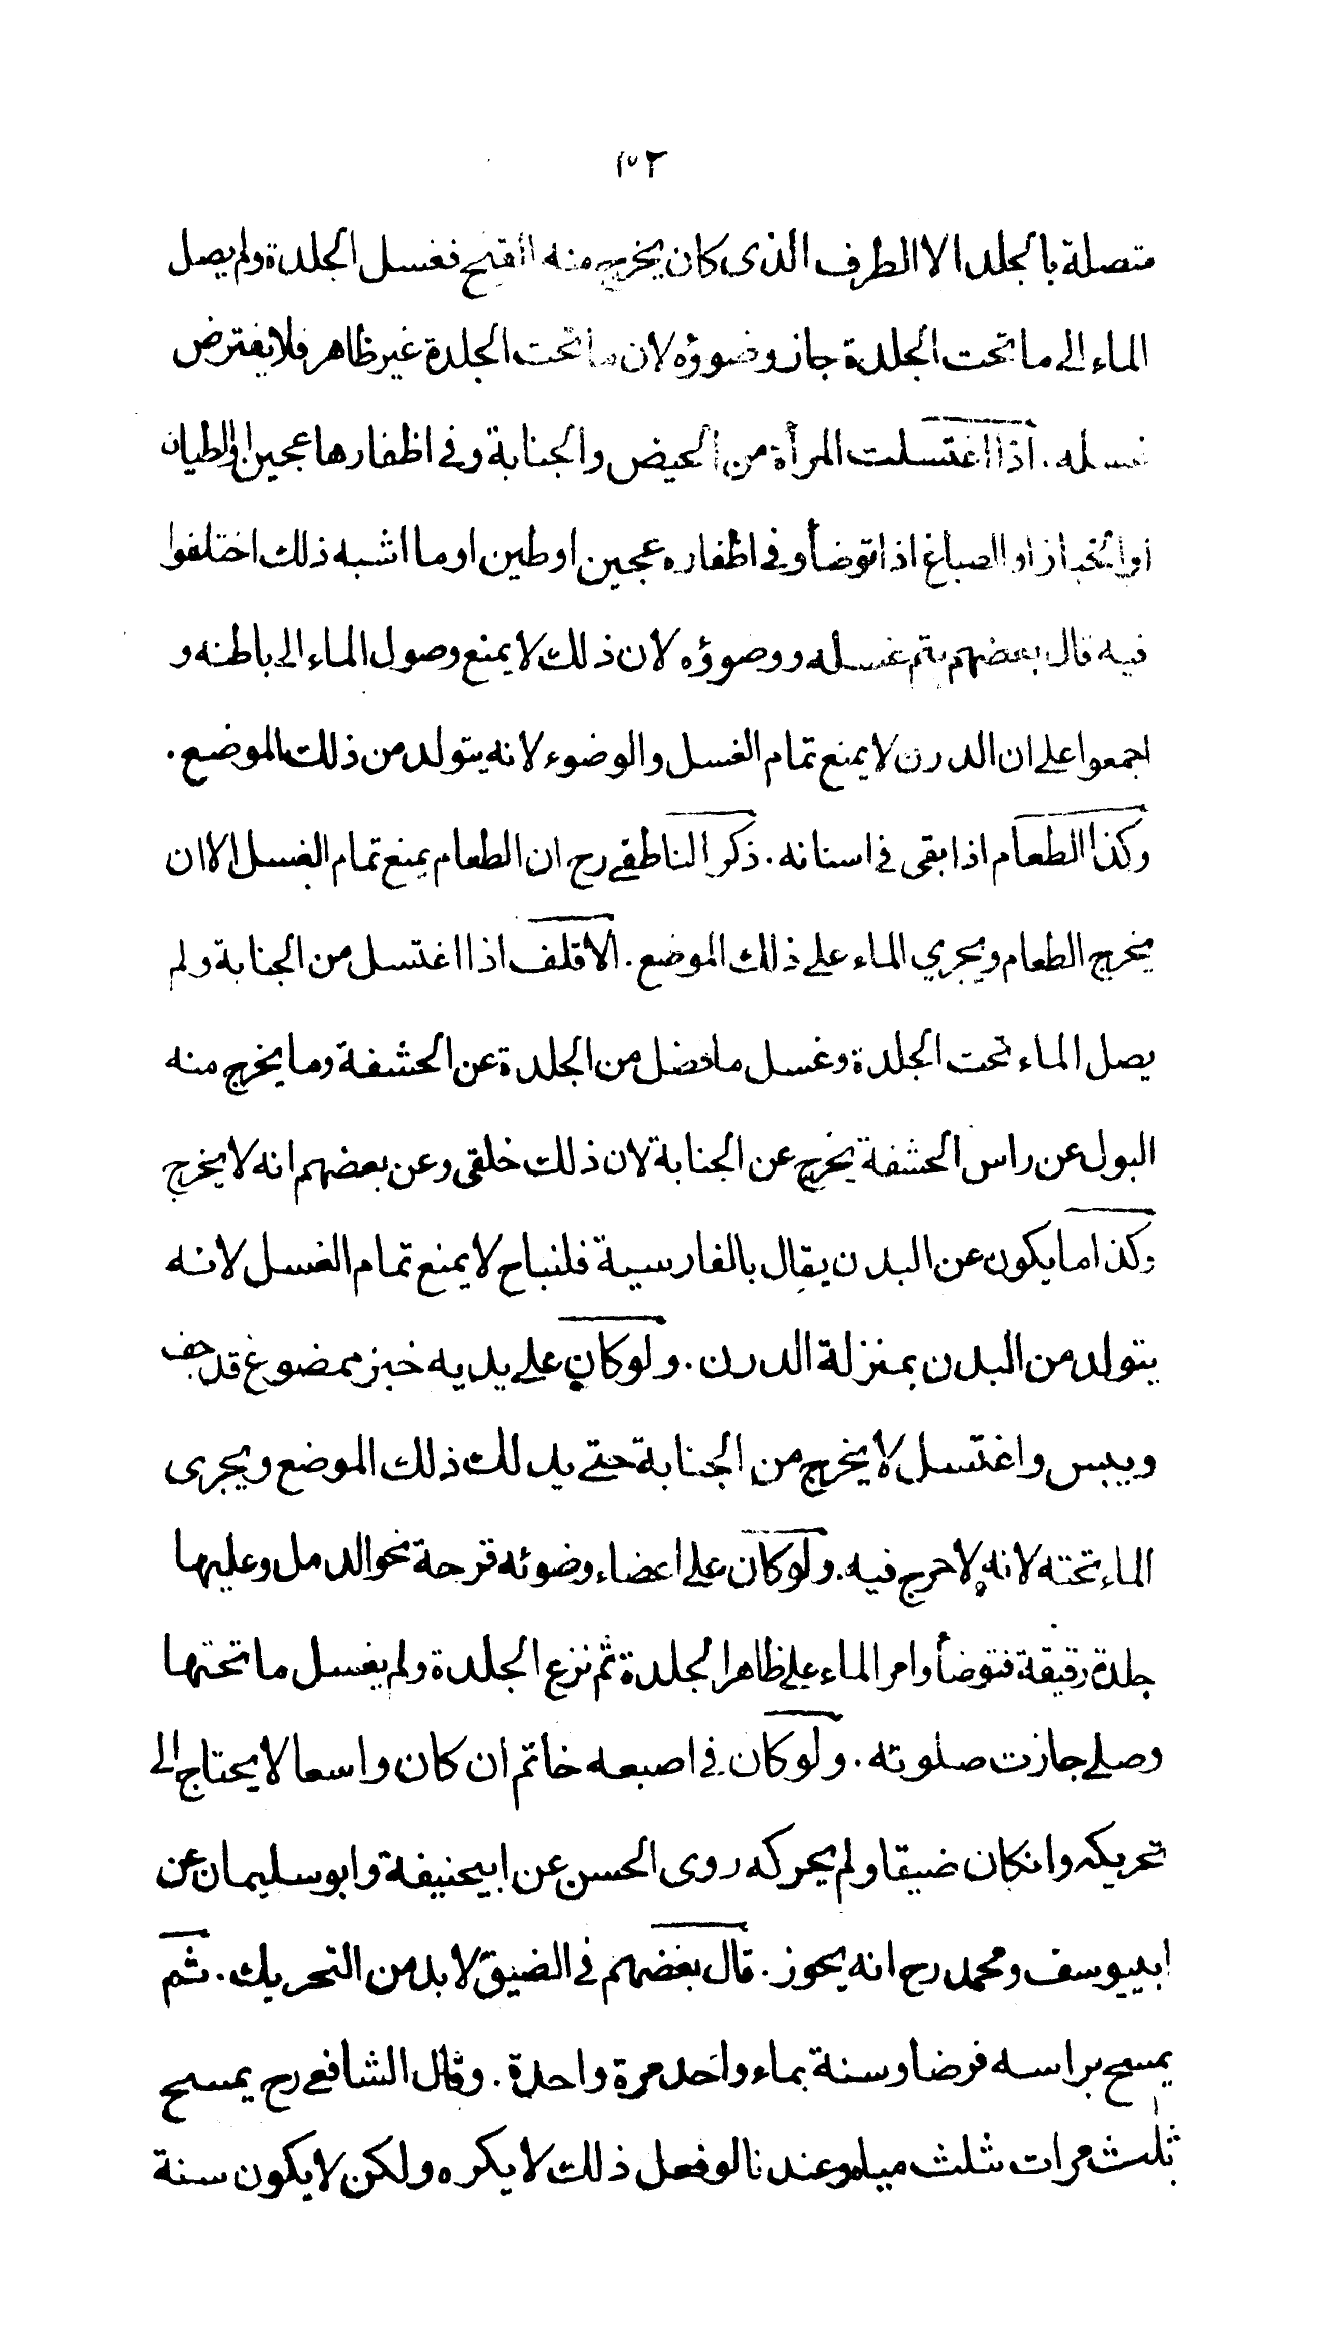 ١٥٢
متصلة بالجلد الا الطرف الذى كان يخرج منه القيح فغسل الجلدة ولم يصل
الماء الى ما تحت الجلدة جاز وضوؤه لان ما تحت الجلدة غير ظاهر فلا يفترض
غسله. اذا اغتسلت المرأة من الحيض والجنابة وفى اظفارها عجين او الطيان
او الخباز او الصباغ اذا توضأ وفى اظفاره عجين او طين او ما اشبه ذلك اختلفوا
فيه قال بعضهم يتم غسله ووضوؤه لان ذلك لا يمنع وصول الماء الى باطنه و
اجمعوا على ان الدرن لا يمنع تمام الغسل والوضوء لانه يتولد من ذلك الموضع.
وكذا الطعام اذا بقى فى اسنانه. ذكر الناطفى رح ان الطعام يمنع تمام الغسل الا ان
يخرج الطعام ويجري الماء على ذلك الموضع. الاقلف اذا اغتسل من الجنابة ولم
يصل الماء تحت الجلدة وغسل ما فضل من الجلدة عن الحشفة وما يخرج منه
البول عن راس الحشفة يخرج عن الجنابة لان ذلك خلقى وعن بعضهم انه لا يخرج
وكذا ما يكون عن البدن يقال بالفارسية فلنباح لا يمنع تمام الغسل لانه
يتولد من البدن بمنزلة الدرن. ولو كان على يديه خبز ممضوغ قد جف
ويبس واغتسل لا يخرج من الجنابة حتى يدلك ذلك الموضع ويجرى
الماء تحته لانه لا حرج فيه. ولو كان على اعضاء وضوئه قرحة نحو الدمل وعليها
جلدة رقيقة فتوضأ وامر الماء على ظاهر الجلدة ثم نزع الجلدة ولم يغسل ما تحتها
وصلى جازت صلوته. ولو كان فى اصبعه خاتم ان كان واسعا لا يحتاج الى
تحريكه وانكان ضيقا ولم يحركه روى الحسن عن ابيحنيفة وابو سليمان عن
ابييوسف ومحمد رح انه يجوز. قال بعضهم فى الضيق لا بد من التحريك. ثم
يمسح براسه فرضا وسنة بماء واحد مرة واحدة. وقال الشافعى رح يمسح
ثلث مرات بثلث مياه وعندنا لو فعل ذلك لا يكره ولكن لا يكون سنة